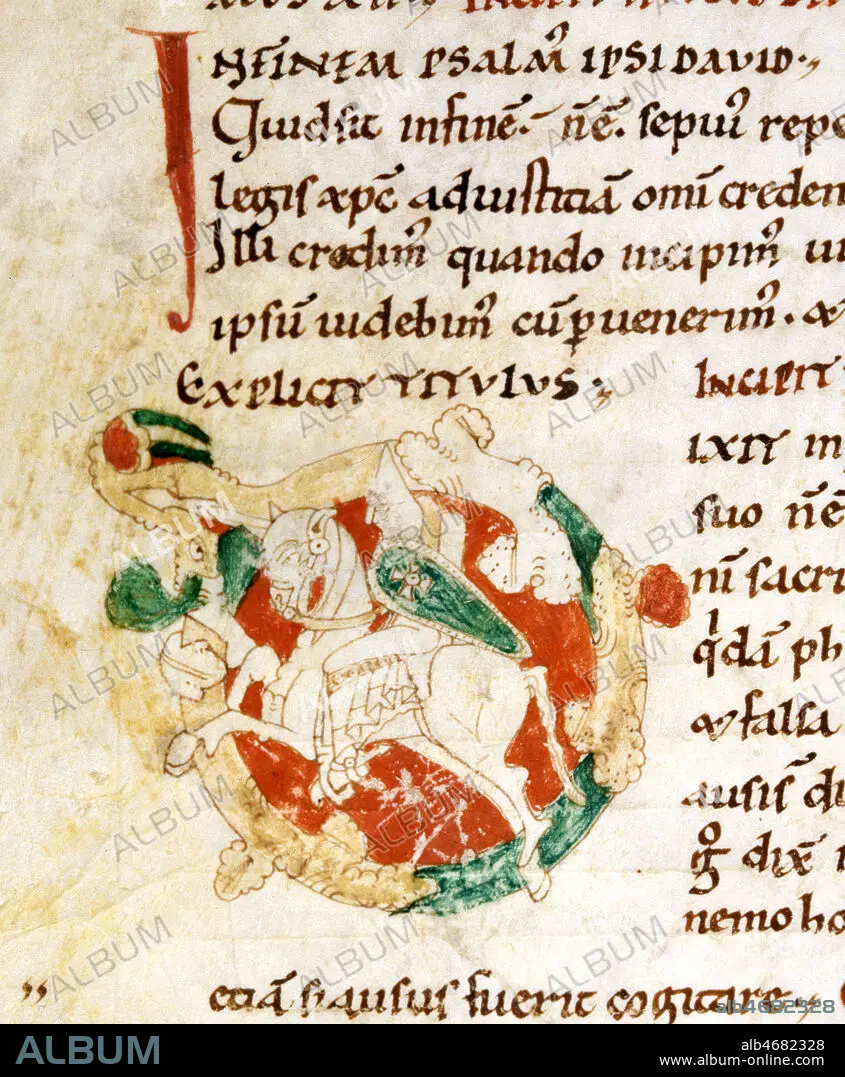 INFINEM PSALM᾽ IPSI DAVID
Quid sit infinē. nē. sepiu᾽ repe
legis xp̄c̄ ad iustitiā omi creden
Illi credim᾽ quando incipim᾽
ipsū uidebim᾽ cū puenerim᾽.
EXPLICIT TITULUS INCIPIT
IXIT in
suo nē
ni sacri
qdā ph
falsa
ausis
dix̄
nemo ho
etiā hausus fuerit cogitare
ALBUM
alb4682328
www.album-online.com